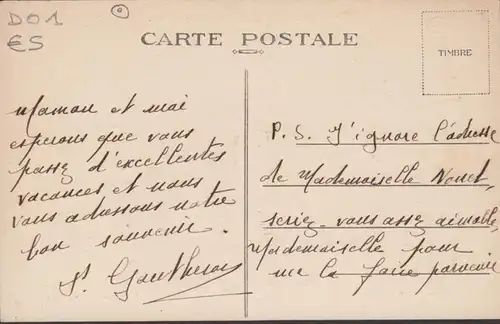 D01
ES
CARTE POSTALE
TIMBRE
Maman et moi
esperons que vous
passez d'excellentes
vacances et nous
vous adressons notre
bon souvenir.
P. S. J'ignore l'adresse
de Mademoiselle
seriez-vous assez aimable,
Mademoiselle pour
me la faire parvenir